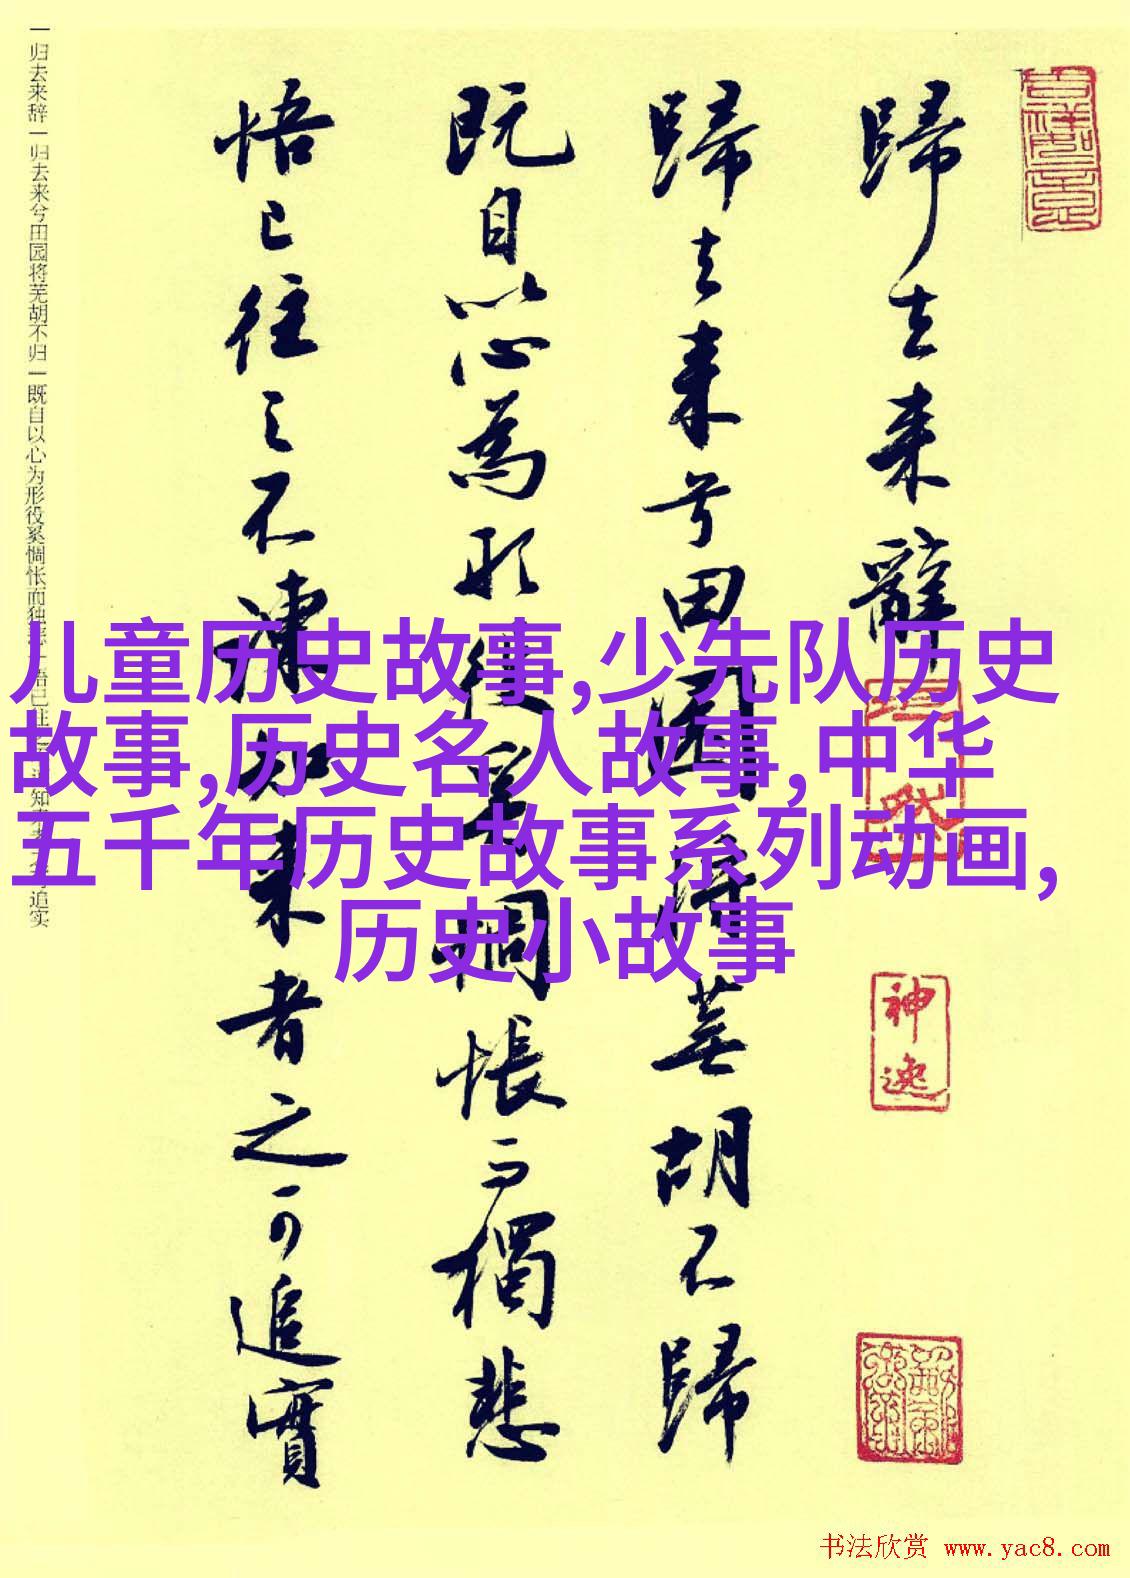 歸去来辭
歸去来兮田園将蕪胡不歸
既自以心為形役奚惆悵而獨悲
悟已往之不諫知来者之可追實
神逸
一归去来辞一归去来兮田园将芜胡不归一既自以心为形役奚惆怅而独悲一悟已往
知来者
追实
儿童历史故事,少先队历史
故事,历史名人故事,中华
五千年历史故事系列动画,
历史小故事
书法欣赏 www.yac8.com